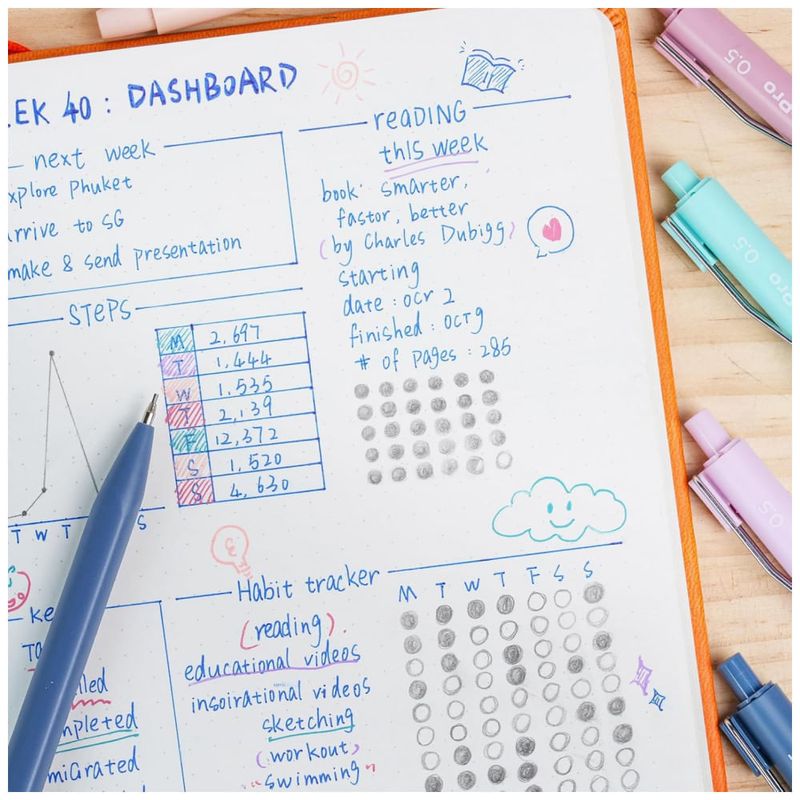 EK 40 : DASHBOARD
next week
xplore Phuket
rrive to SG
make & send presentation
STePS
M 2,697
T 1,444
W 1.535
T 2,139
F 12,372
S 1,520
S 4,630
T W T S
reaDING
this week
book: smarter,
fastor, better
(by Charles Dubigg)
starting
date : ocr 2
finished : ocT 9
# of pages : 285
Ke
Ta
lled
mpleted
miGrated
Habit tracker
M T W T F S S
(reading).
educational videos
insoirational videos
sketching
(workout)
"swimming"
pro 0.5
0.5
0.5